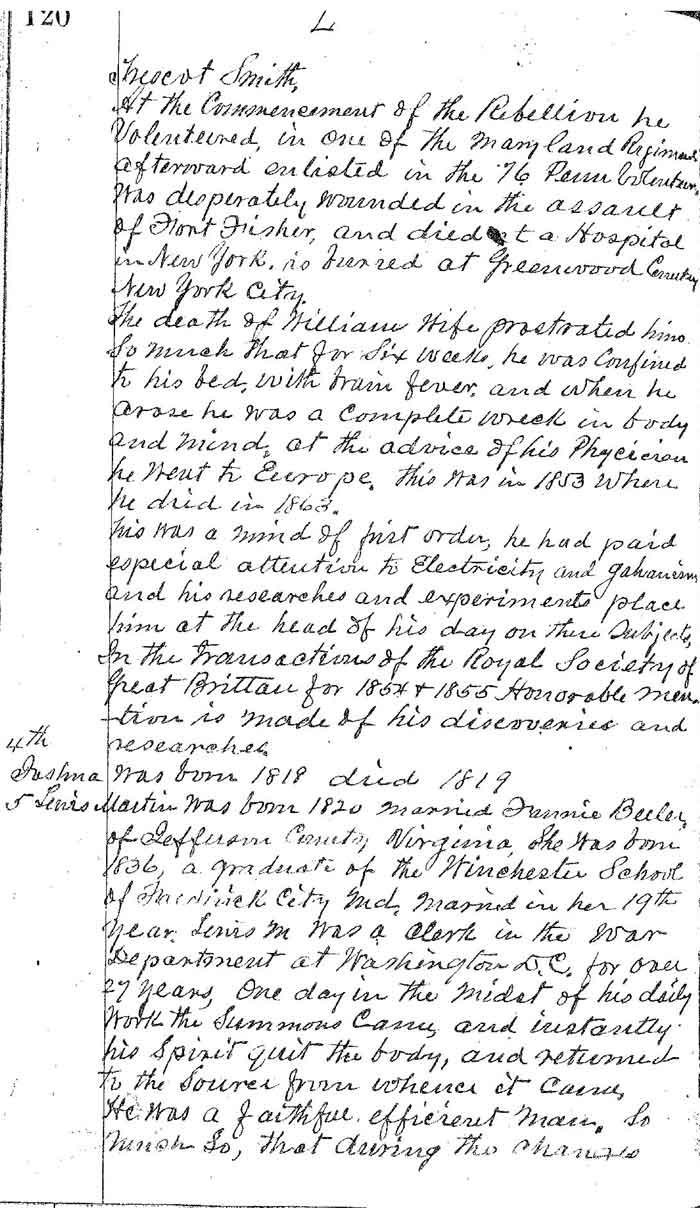 120
L
Prescot Smith,
At the Commencement of the Rebellion he
Volenteered, in one of the Maryland Regiment
afterward enlisted in the 76 Penn Volenteers,
Was desperately wounded in the assault
of Fort Fisher, and died at a Hospital
in New York. is buried at Greenwood Cemetery
New York City.
The death of William Wife prostrated him
So much that for Six weeks, he was Confined
to his bed, with brain fever, and when he
arose he was a complete wreck in body
and mind, at the advice of his Phycician
he Went to Europe. this was in 1853 Where
he died in 1863.
his was a mind of first order, he had paid
especial attention to Electricity and galvanism
and his researches and experiments place
him at the head of his day on these Subjects,
In the transactions of the Royal Society of
Great Brittan for 1854 & 1855 Honorable men
-tion is made of his discoveries and
researches
4th
Joshua was born 1818 died 1819
5 Lewis Martin Was born 1820 married Fannie Beeler,
of Jefferson County, Virginia, She was born
1836, a graduate of the Winchester School
of Fredrick City Md, Married in her 19th
year. Lewis M Was a Clerk in the War
Department at Washington D.C. for over
27 years, One day in the Midst of his daily
Work the Summons Came, and instantly
his Spirit quit the body, and returned
to the Source from whence it Came,
He Was a faithful efficient Man. So
much So, that during the changes